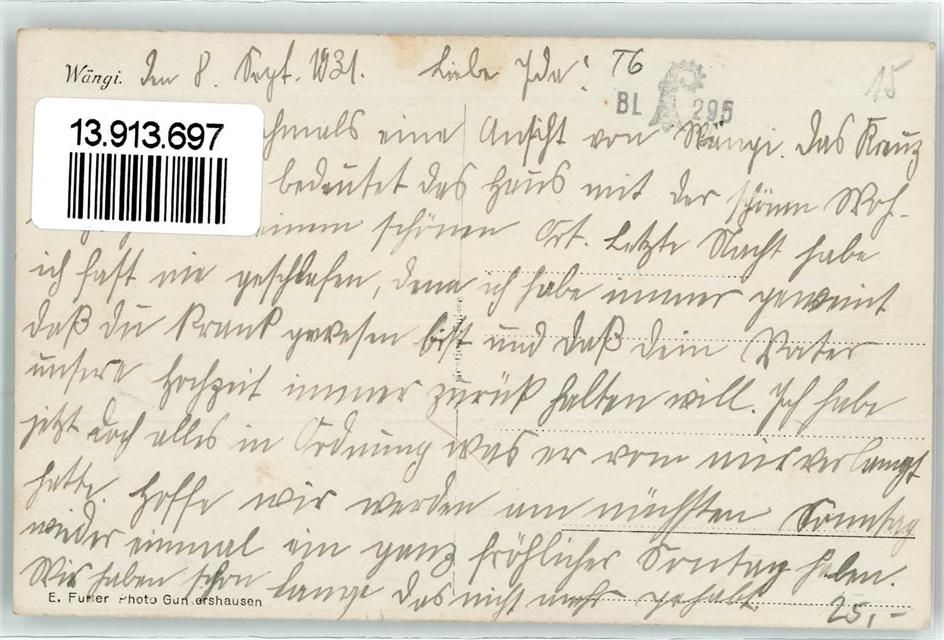 Wängi. den 8. Sept. 1931. Liebe Ida! T6 15
BL 295
13.913.697
chmals eine Ansicht von Wängi. Das Kreuz
bedeutet das Haus mit der schönen Woh-
einem schönen Ort. Letzte Nacht habe
ich fast nie geschlafen, denn ich habe immer geweint
daß du krank gewesen bist und daß dein Vater
unsere Hochzeit immer zurück halten will. Ich habe
jetzt doch alles in Ordnung was er von mir verlangt
hatte. Hoffe wir werden am nächsten Sonntag
wieder einmal ein ganz fröhlicher Sonntag haben.
Wir haben schon lange das nicht mehr gehabt.
E. Furrer Photo Guntershausen
25,-